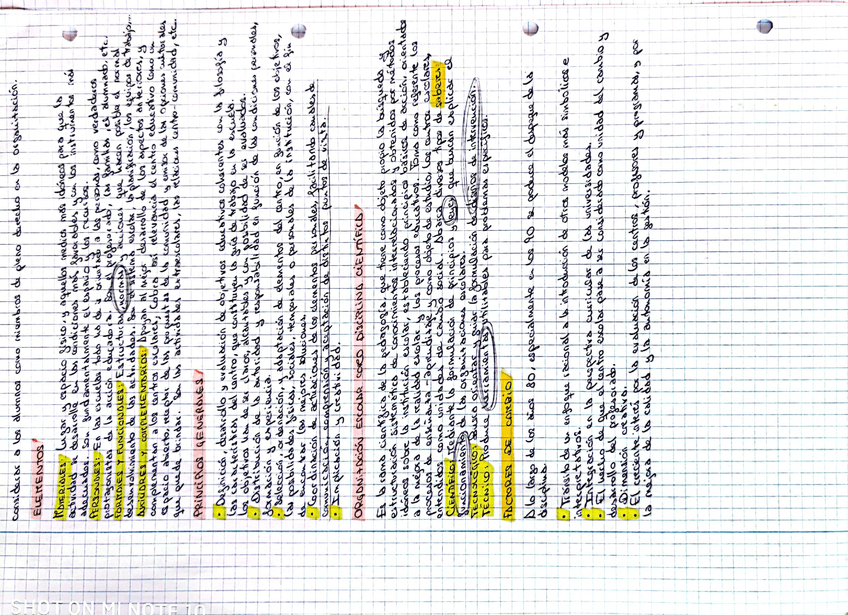 considerar a los alumnos como miembros de pleno derecho en la organización.
ELEMENTOS
MATERIALES: Lugar y espacio físico, y aquellos medios más idóneos para que la
actividad se desarrolle en las condiciones más favorables y con los instrumentos más
adecuados. Son fundamentalmente el espacio y los recursos.
PERSONALES: En las escuelas todo nos lleva a las personas como verdaderos
protagonistas de la acción educadora. Son el profesorado, las familias, el alumnado, etc.
FORMALES Y FUNCIONALES: Estructuras, normas y acciones que hacen posible el normal
desenvolvimiento de las actividades. Son el sistema escolar, la planificación, los equipos de trabajo,...
AUXILIARES Y COMPLEMENTARIOS: Apoyan al mejor desarrollo de los aspectos anteriores, y
complementan a los centros escolares, cobran así relevancia el centro educativo como un
espacio abierto receptor de las propuestas de la comunidad y emisor de las opciones culturales
que puede brindar. Son las actividades extraescolares, las relaciones centro-comunidad, etc.
PRINCIPIOS GENERALES
• Definición, desarrollo y evaluación de objetivos educativos coherentes con la filosofía y
las características del centro, que constituyen la guía de trabajo en la escuela.
Los objetivos han de ser claros, alcanzables y con posibilidad de ser evaluados.
• Distribución de la autoridad y responsabilidad en función de las condiciones personales,
formación y experiencia.
• Selección, ordenación, y adaptación de elementos del centro, en función de los objetivos,
las posibilidades físicas, sociales, temporales o personales de la institución, con el fin
de encontrar las mejores soluciones.
• Coordinación de actuaciones de los elementos personales, facilitando canales de
comunicación, comprensión y aceptación de distintos puntos de vista.
• Implicación y creatividad.
ORGANIZACIÓN ESCOLAR COMO DISCIPLINA CIENTÍFICA
Es la rama científica de la pedagogía, que tiene como objeto propio la búsqueda y
estructuración sistemática de conocimientos interrelacionados y obtenidos por métodos
idóneos sobre la institución escolar, estableciendo principios básicos de acción, orientados
a la mejora de la realidad escolar y los procesos educativos. Toma como referente los
procesos de enseñanza-aprendizaje y como objeto de estudio los centros escolares,
entendidos como unidades de cambio social. Abarca diversos tipos de saberes:
CIENTÍFICO: Mediante la formulación de principios y leyes que buscan explicar el
funcionamiento de las organizaciones escolares.
TECNOLÓGICO: Busca orientar y guiar la formulación de de intervención.
TÉCNICO: Produce herramientas utilizables para problemas específicos.
FACTORES DE CAMBIO
A lo largo de los años 80, especialmente en los 90 se produce el despegue de la
disciplina.
• Tránsito de un enfoque racional a la introducción de otros modelos más simbólicos e
interpretativos.
• Integración en la perspectiva curricular de las universidades.
• El hecho de que el centro escolar pase a ser considerado como unidad del cambio y
desarrollo del profesorado.
• Dimensión creativa.
• El creciente interés por la evaluación de los centros, profesores y programas, y por
la mejora de la calidad y la autonomía en la gestión.
SHOT ON MI NOTE 10